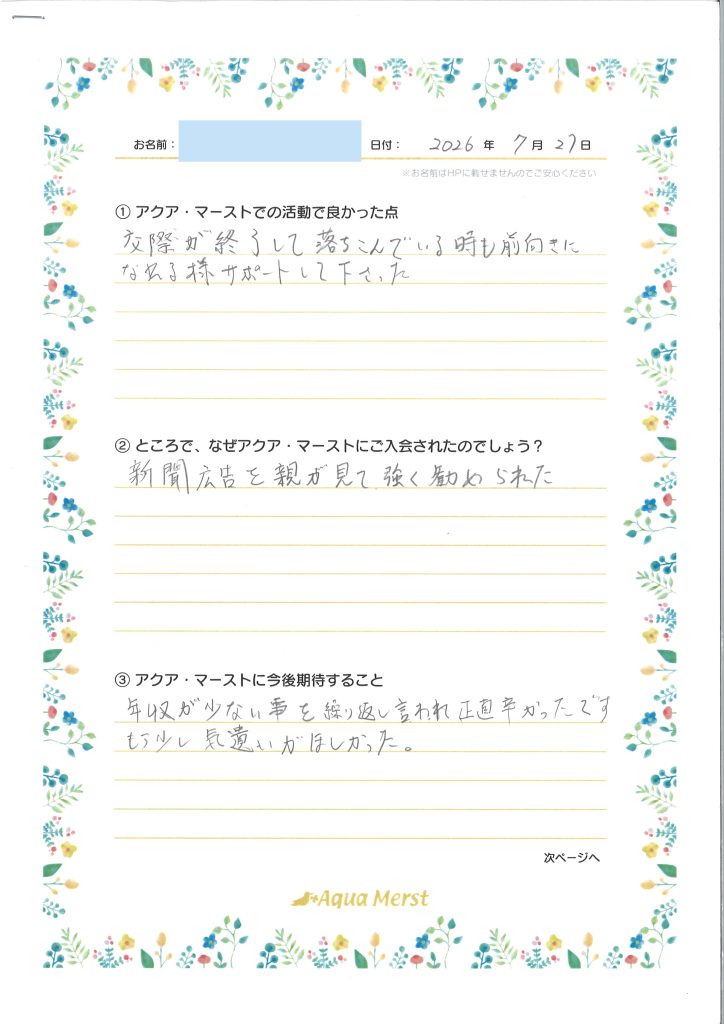 お名前：
日付： 2026 年 7 月 27 日
※お名前はHPに載せませんのでご安心ください
① アクア・マーストでの活動で良かった点
交際が終了して落ちこんでいる時も前向きに
なれる様サポートして下さった
② ところで、なぜアクア・マーストにご入会されたのでしょう？
新聞広告を親が見て、強く勧められた
③ アクア・マーストに今後期待すること
年収が少ない事を繰り返し言われ正直辛かったです
もう少し気遣いがほしかった。
次ページへ
Aqua Merst